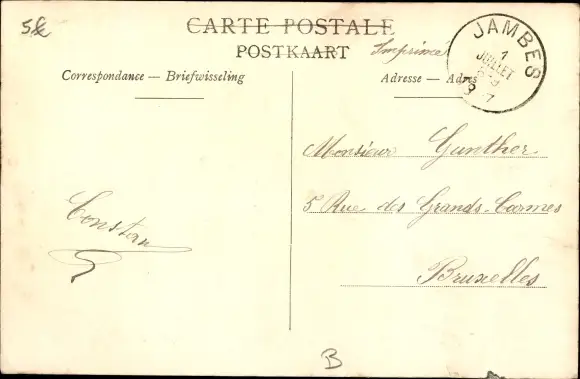 5€
CARTE POSTALE
POSTKAART
Imprimé
Correspondance — Briefwisseling
Adresse — Adres
JAMBES
1
JUILLET
Monsieur Gunther
5 Rue des Grands-Carmes
Bruxelles
Constan
B